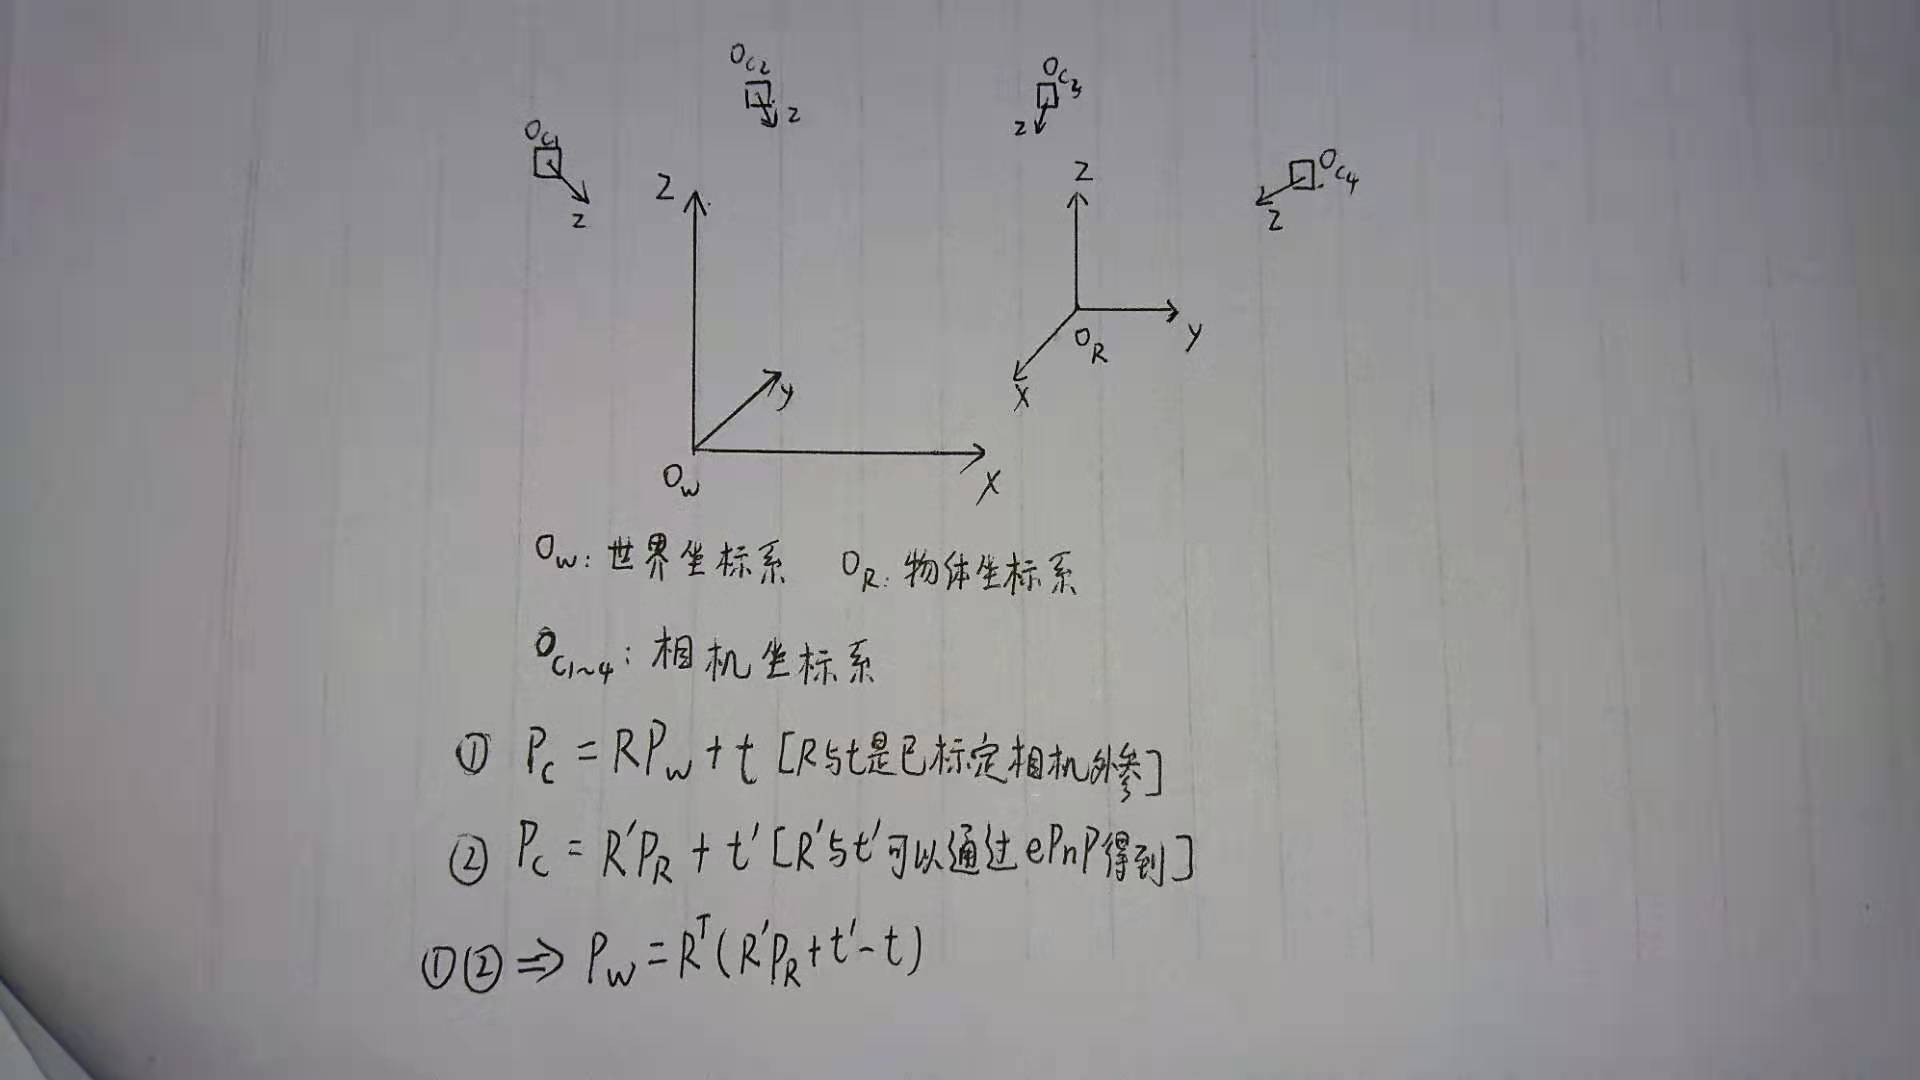 O_C2
O_C3
z
z
O_C1
O_C4
z
z
Z
Z
y
y
O_R
X
O_W
X
O_W: 世界坐标系 O_R: 物体坐标系
O_C1~4: 相机坐标系
① P_C = RP_W + t [R与t是已标定相机外参]
② P_C = R'P_R + t' [R'与t'可以通过ePnP得到]
①② ⇒ P_W = R^T(R'P_R + t' - t)